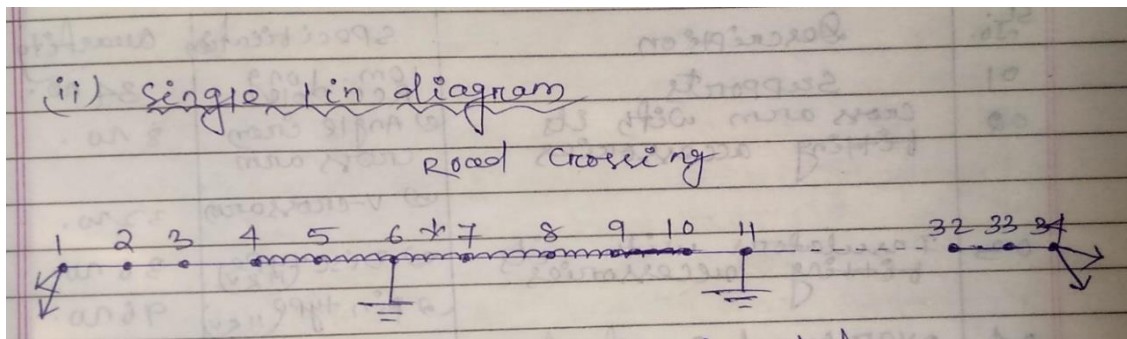 (ii) Single lin diagram
Road Crossing
1 2 3 4 5 6 * 7 8 9 10 11 32 33 34